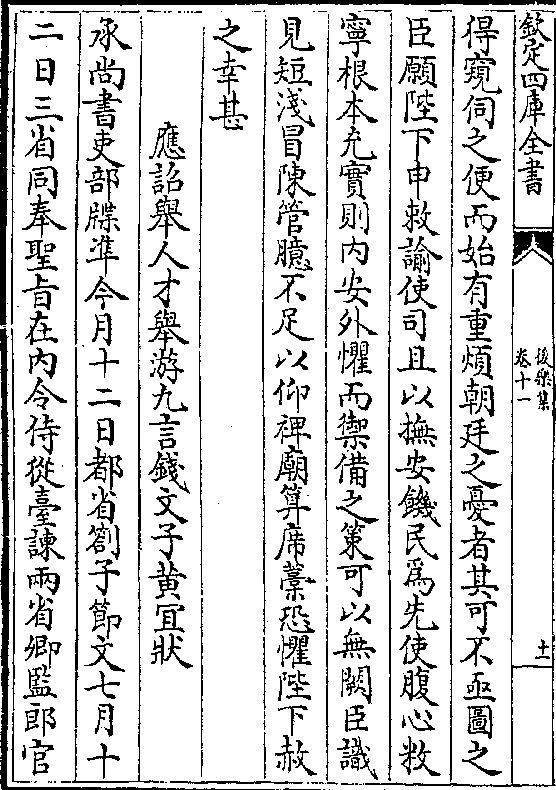 欽定四庫全書
後樂集
卷十一
十一
得窺伺之便而始有重煩朝廷之憂者其可不亟圖之
臣願陛下申敕諭使司且以撫安饑民為先使腹心敉
寧根本充實則内安外懼而禦備之策可以無闕臣識
見短淺冒陳管臆不足以仰裨廟算席藁恐懼陛下赦
之幸甚
應詔舉人才舉游九言錢文子黄宜狀
承尚書吏部牒準今月十二日都省劄子節文七月十
二日三省同奉聖旨在内令侍從臺諫兩省卿監郎官